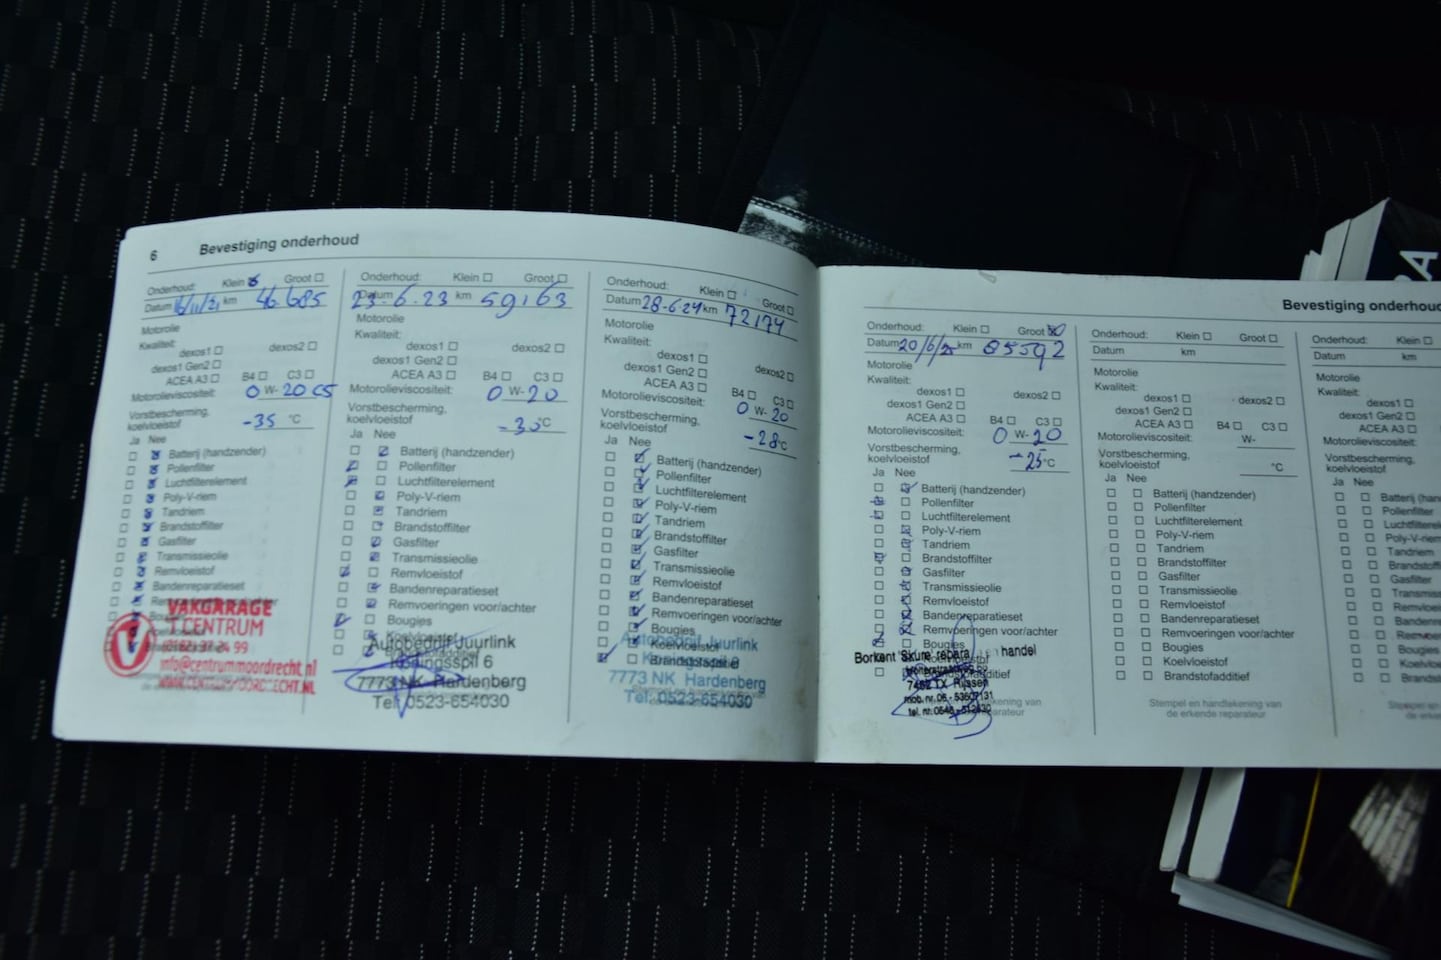 6 Bevestiging onderhoud
Onderhoud: Klein Groot
Datum 16/11/21 km 46.685
Motorolie
Kwaliteit:
dexos1 dexos2
dexos1 Gen2
ACEA A3 B4 C3
Motorolieviscositeit: 0 W- 20 C5
Vorstbescherming,
koelvloeistof -35 °C
Ja Nee
Batterij (handzender)
Pollenfilter
Luchtfilterelement
Poly-V-riem
Tandriem
Brandstoffilter
Gasfilter
Transmissieolie
Remvloeistof
Bandenreparatieset
VAKGARAGE
'T CENTRUM
info@centrummoordrecht.nl
WWW.CENTRUMMOORDRECHT.NL
Onderhoud: Klein Groot
Datum 23-6-23 km 59163
Motorolie
Kwaliteit:
dexos1 dexos2
dexos1 Gen2
ACEA A3 B4 C3
Motorolieviscositeit: 0 W- 20
Vorstbescherming,
koelvloeistof °C
Ja Nee
Batterij (handzender)
Pollenfilter
Luchtfilterelement
Poly-V-riem
Tandriem
Brandstoffilter
Gasfilter
Transmissieolie
Remvloeistof
Bandenreparatieset
Remvoeringen voor/achter
Bougies
Koelvloeistof
Autobedrijf Juurlink
Koningsspil 6
7773 NK Hardenberg
Tel: 0523-654030
Onderhoud: Klein Groot
Datum 28-6-24 km 72174
Motorolie
Kwaliteit:
dexos1 dexos2
dexos1 Gen2
ACEA A3 B4 C3
Motorolieviscositeit: 0 W- 20
Vorstbescherming,
koelvloeistof -28 °C
Ja Nee
Batterij (handzender)
Pollenfilter
Luchtfilterelement
Poly-V-riem
Tandriem
Brandstoffilter
Gasfilter
Transmissieolie
Remvloeistof
Bandenreparatieset
Remvoeringen voor/achter
Bougies
Koelvloeistof
Brandstofadditief
Autobedrijf Juurlink
Koningsspil 6
7773 NK Hardenberg
Tel: 0523-654030
Bevestiging onderhoud
Onderhoud: Klein Groot
Datum 20/6/25 km 85592
Motorolie
Kwaliteit:
dexos1 dexos2
dexos1 Gen2
ACEA A3 B4 C3
Motorolieviscositeit: 0 W- 20
Vorstbescherming,
koelvloeistof -25 °C
Ja Nee
Batterij (handzender)
Pollenfilter
Luchtfilterelement
Poly-V-riem
Tandriem
Brandstoffilter
Gasfilter
Transmissieolie
Remvloeistof
Bandenreparatieset
Remvoeringen voor/achter
Bougies
Koelvloeistof
Brandstofadditief
Borkent handel
Rijssen
mob. nr. 06 - 53607131
Onderhoud: Klein Groot
Datum km
Motorolie
Kwaliteit:
dexos1 dexos2
dexos1 Gen2
ACEA A3 B4 C3
Motorolieviscositeit: W-
Vorstbescherming,
koelvloeistof °C
Ja Nee
Batterij (handzender)
Pollenfilter
Luchtfilterelement
Poly-V-riem
Tandriem
Brandstoffilter
Gasfilter
Transmissieolie
Remvloeistof
Bandenreparatieset
Remvoeringen voor/achter
Bougies
Koelvloeistof
Brandstofadditief
Stempel en handtekening van
de erkende reparateur
Onderhoud: Klein
Datum km
Motorolie
Kwaliteit:
dexos1
dexos1 Gen2
ACEA A3
Motorolieviscositeit:
Vorstbescherming,
koelvloeistof
Ja Nee